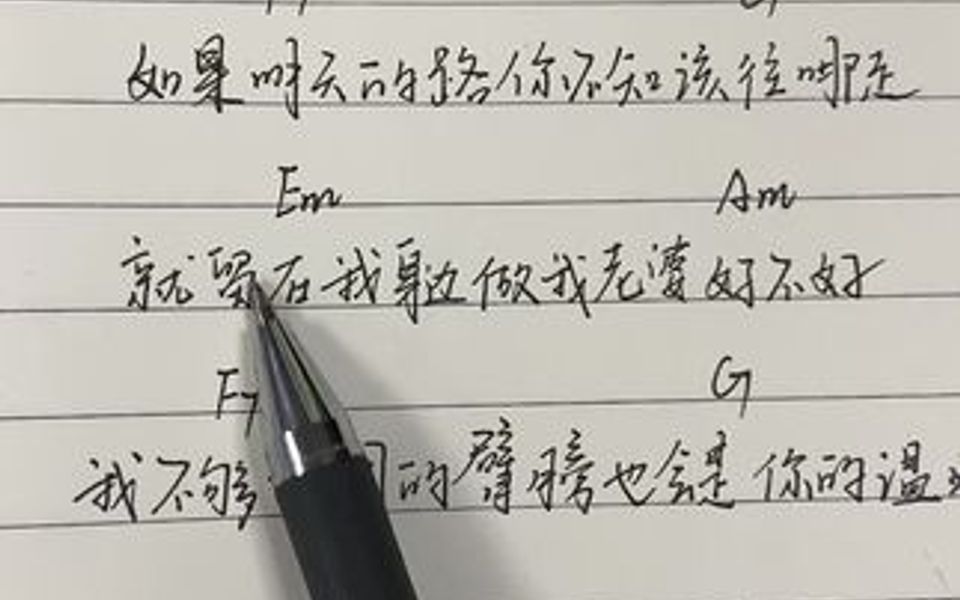 如果明天的路你不知该往哪走
Em Am
就留在我身边做我老婆好不好
F G
我不够 的臂膀也会是你的温